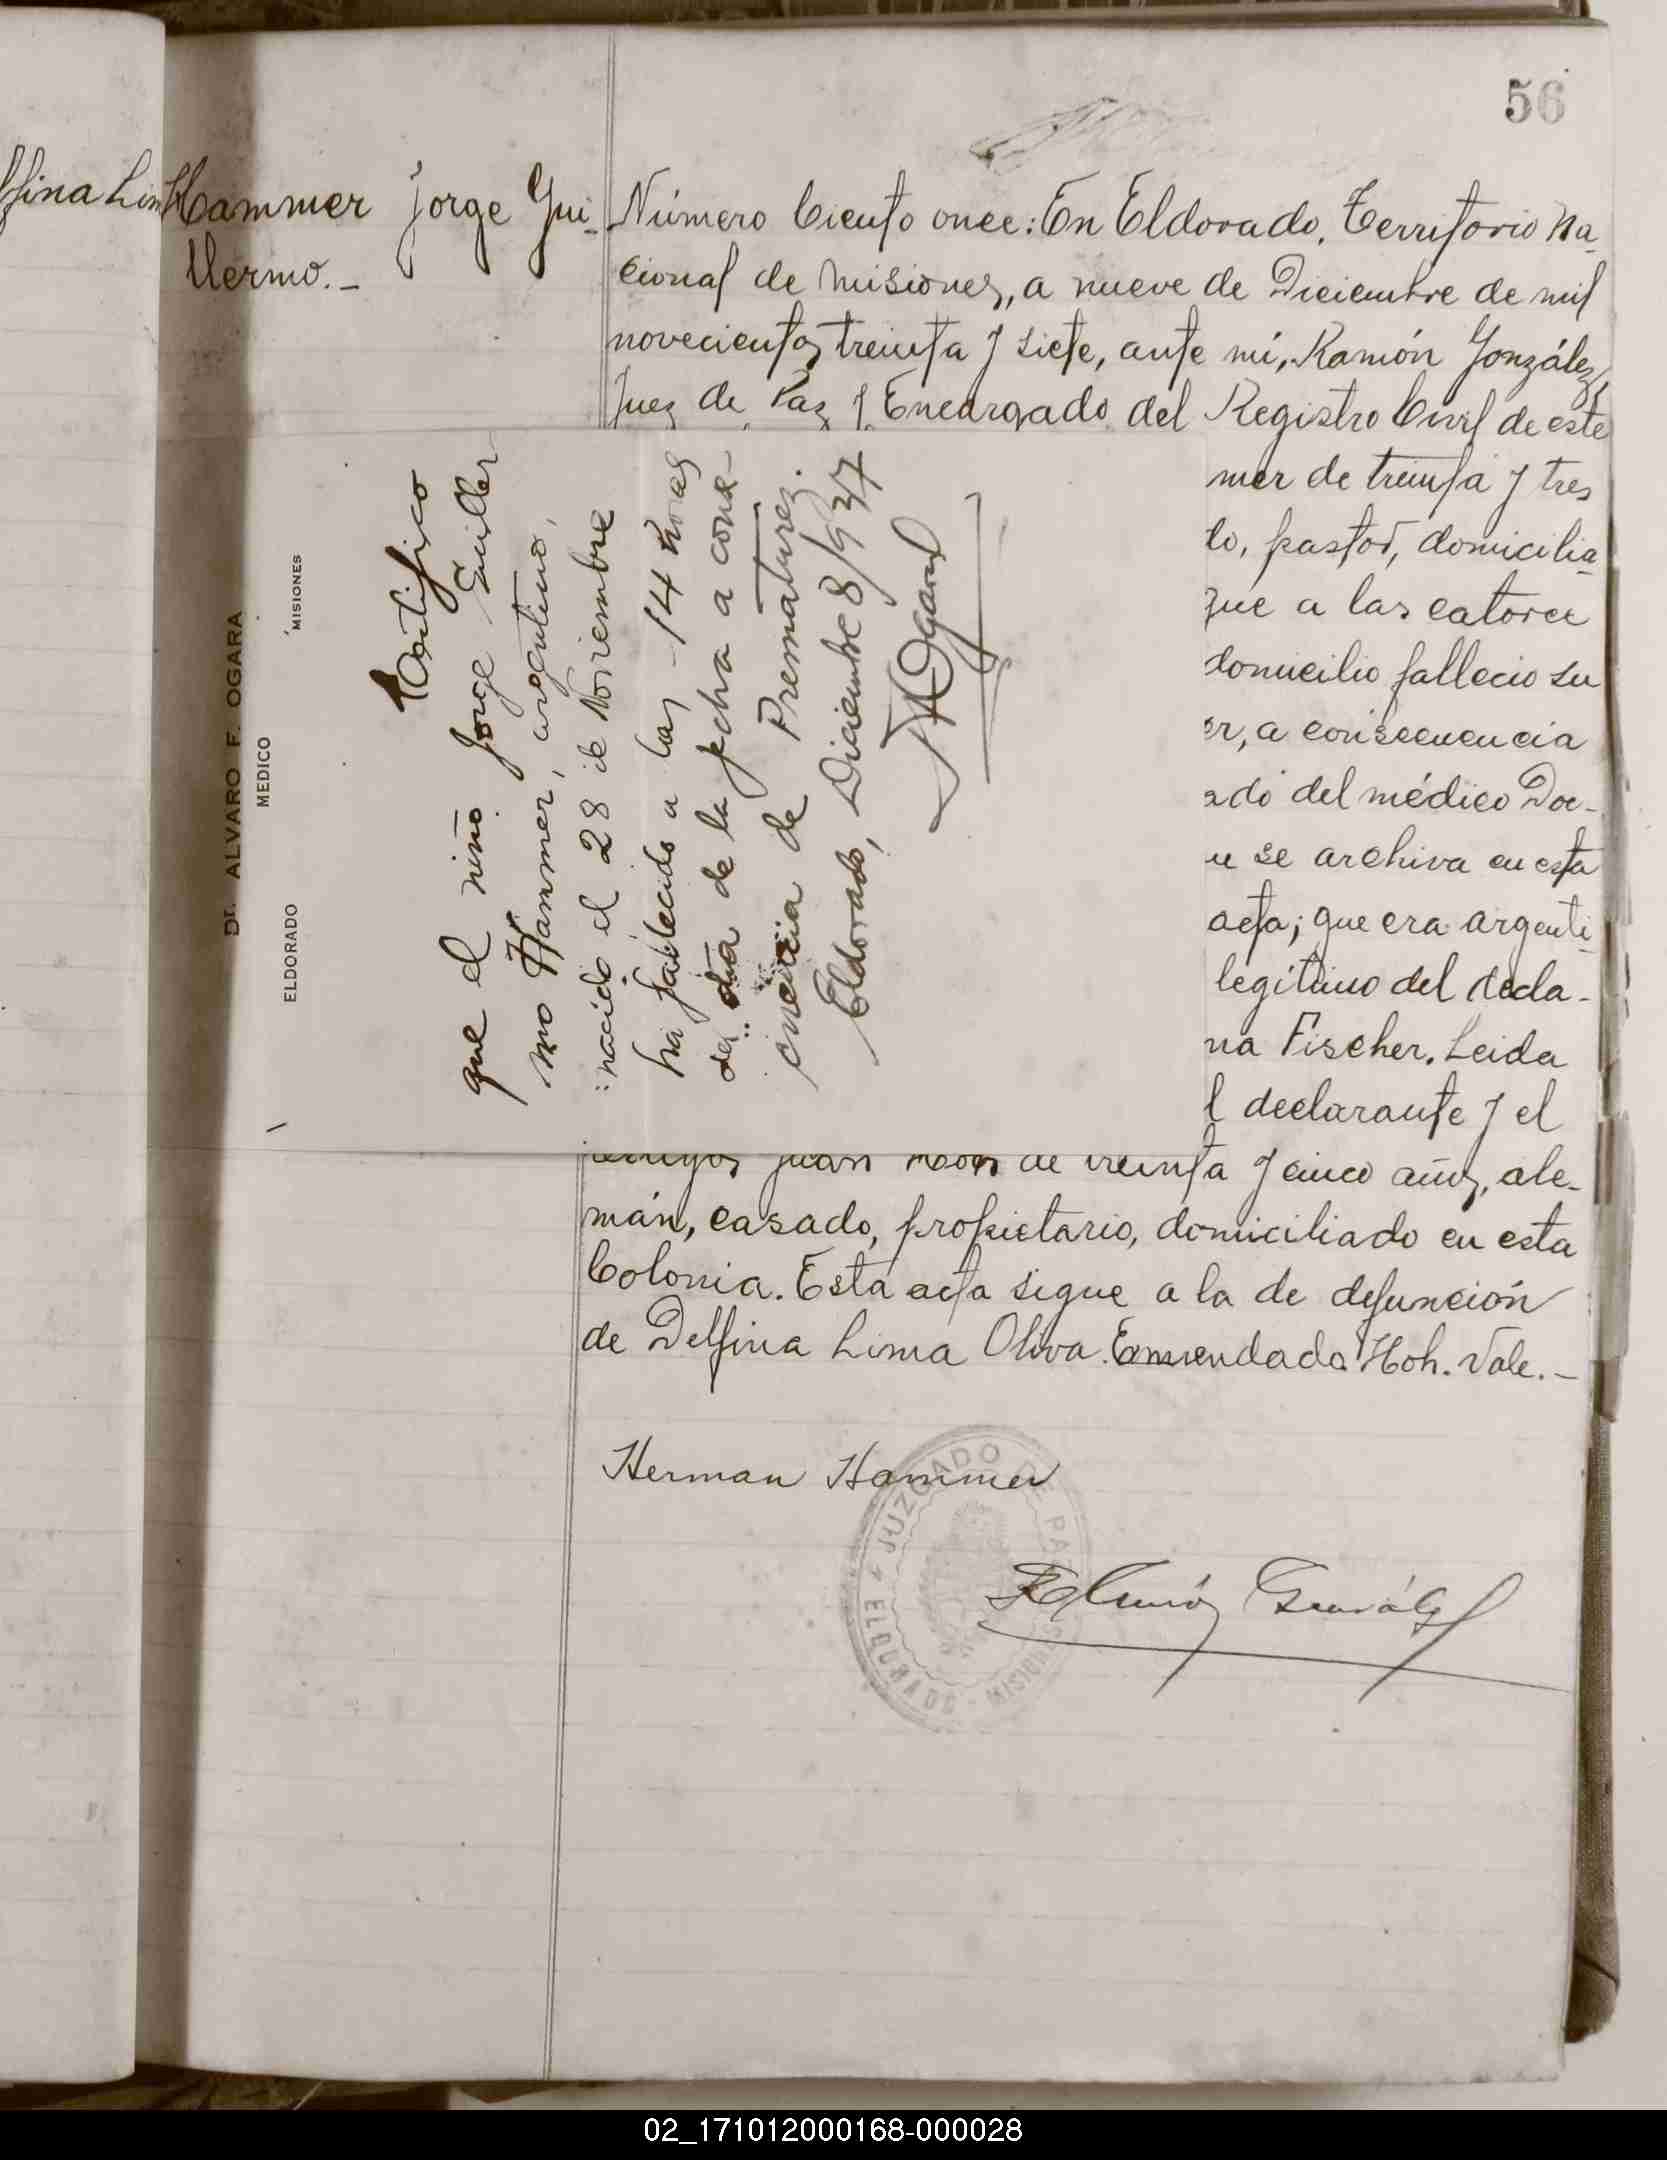 56
ffina Lim
Hammer Jorge Gui-
llermo.-
Número Ciento once: En Eldorado, Territorio Na-
cional de Misiones, a nueve de Diciembre de mil
novecientos treinta y siete, ante mí, Ramón González,
Juez de Paz y Encargado del Registro Civil de este
mer de treinta y tres
do, pastor, domicilia-
que a las catorce
domicilio fallecio su
er, a consecuencia
ado del médico Doc-
se archiva en esta
acta; que era argenti-
legítimo del decla-
na Fischer. Leida
l declarante y el
Juan de treinta y cinco años, ale-
mán, casado, propietario, domiciliado en esta
Colonia. Esta acta sigue a la de defunción
de Delfina Lima Oliva. Enmendado Hoh. Vale.-
Herman Hammer
Ramón González
JUZGADO DE PAZ
ELDORADO - MISIONES
Dr. ALVARO F. OGARA
MEDICO
ELDORADO MISIONES
Certifico
que el niño Jorge Guiller-
mo Hammer, argentino,
nacido el 28 de Noviembre
ha fallecido a las -14 horas
del día de la fecha a conse-
cuencia de Prematurez.
Eldorado, Diciembre 8/937
02_171012000168-000028